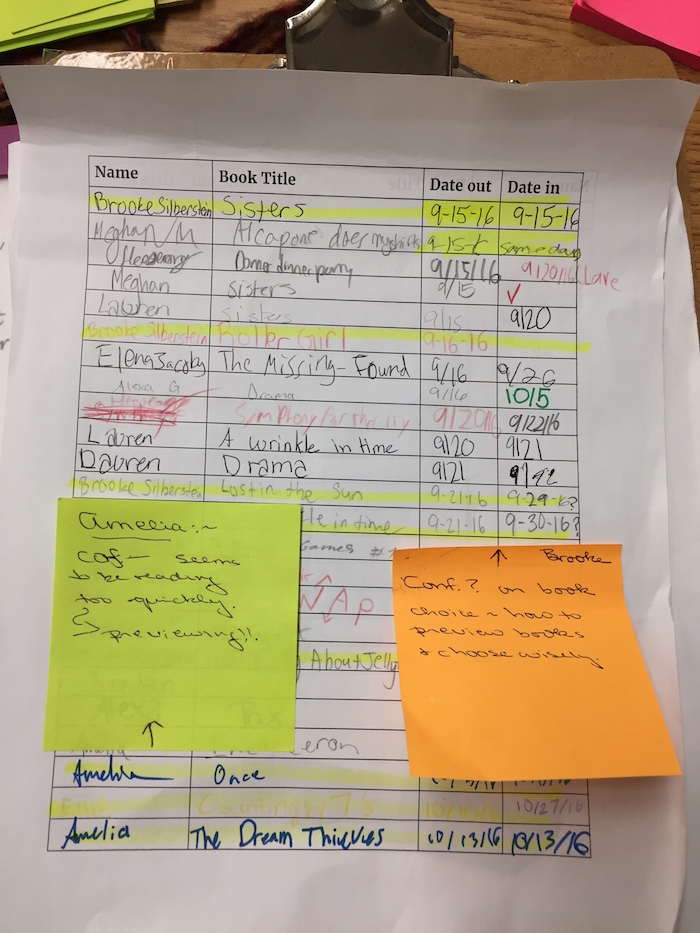 Name Book Title Date out Date in
Brooke Silberstein Sisters 9-15-16 9-15-16
Meghan M Alcapone does my shirts 9-15-16 same day
Donner dinner party 9/15/16 9/20/16 Late
Meghan Sisters 9/15 ✓
Lauren Sisters 9/15 9/20
Brooke Silberstein Roller Girl 9-16-16
Elena Jacoby The Missing-Found 9/16 9/26
Alexa G Drama 9/16 10/5
Symphony for the 9/20/16 9/22/16
Lauren A wrinkle in time 9/20 9/21
Lauren Drama 9/21
Brooke Silberstein Lost in the Sun 9-21-16 9-29-16?
le in time 9-21-16 9-30-16?
Games #1
About Jelly
Alexa Pax
Amelia eron
Amelia Once
Counting by 7's 10/27/16
Amelia The Dream Thieves 10/13/16 10/13/16
Amelia:~
seems
to be reading
too quickly.
previewing!!
↑
↑ Brooke
Conf.? on book
choice ~ how to
preview books
+ choose wisely.